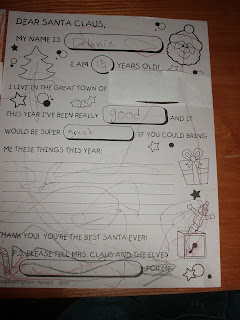 DEAR SANTA CLAUS,
MY NAME IS Delanie
I AM 1½ YEARS OLD!
I LIVE IN THE GREAT TOWN OF
THIS YEAR I'VE BEEN REALLY good AND IT
WOULD BE SUPER great IF YOU COULD BRING
ME THESE THINGS THIS YEAR:
THANK YOU! YOU'RE THE BEST SANTA EVER!
P.S. PLEASE TELL MRS. CLAUS AND THE ELVES
FOR ME!